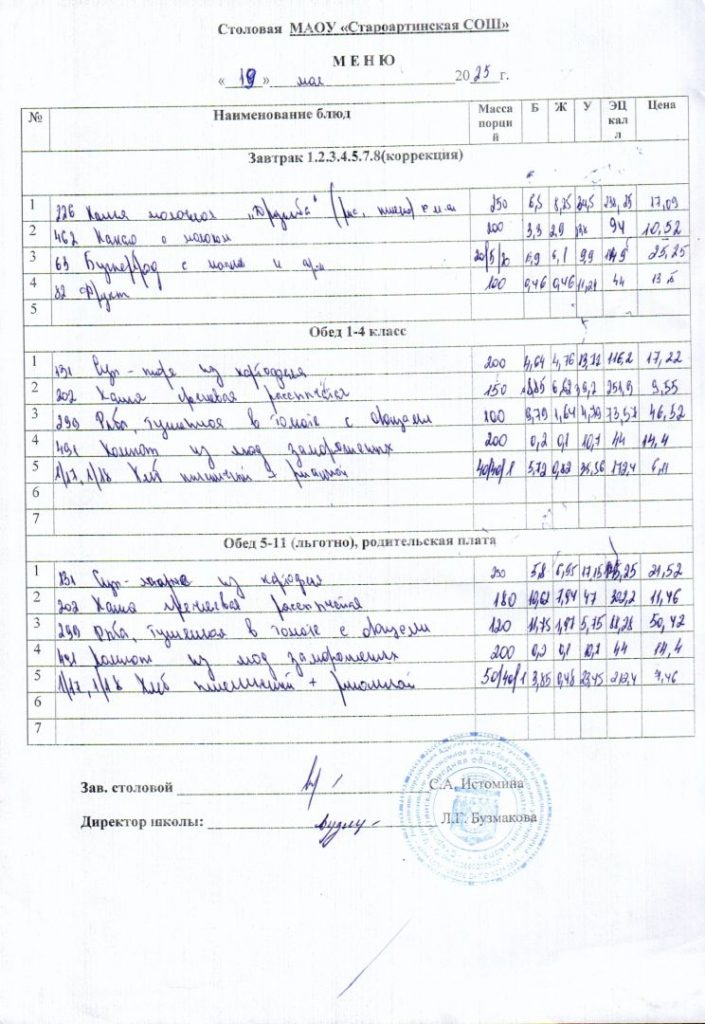 Столовая МАОУ «Староартинская СОШ»
М Е Н Ю
« 19 » мая 2025 г.
№ Наименование блюд Масса порций Б Ж У ЭЦ калл Цена
Завтрак 1.2.3.4.5.7.8(коррекция)
1 226 Каша молочная „Дружба“ (рис, пшено) с м.м 250 6,5 8,25 17,09
2 462 Какао с молоком 200 3,3 2,9 94 10,52
3 63 Бутерброд с маслом и 20/5/20 6,9 9,9 25,25
4 82 Фрукт 100 0,46 0,46 11,21 44
5
Обед 1-4 класс
1 131 Суп-пюре из картофеля 200 4,64 4,76 116,2 17,22
2 202 Каша гречневая рассыпчатая 150 9,55
3 299 Рыба, тушенная в томате с овощами 100 9,79 1,64 4,79 73,57 46,52
4 491 Компот из ягод замороженых 200 0,2 0,1 10,7 44 14,4
5 1/17, 1/18 Хлеб пшеничный + ржаной 40/40/1 172,4 6,11
6
7
Обед 5-11 (льготно), родительская плата
1 131 Суп-пюре из картофеля 250 5,8 5,95 17,15 21,52
2 202 Каша гречневая рассыпчатая 180 10,62 7,94 47 302,2 11,46
3 299 Рыба, тушенная в томате с овощами 120 11,75 1,97 5,75 88,28 50,42
4 491 Компот из ягод замороженых 200 0,2 0,1 10,7 44 14,4
5 1/17, 1/18 Хлеб пшеничный + ржаной 50/40/1 3,85 0,48 212,4 7,46
6
7
Зав. столовой С.А. Истомина
Директор школы: Л.Г. Бузмакова